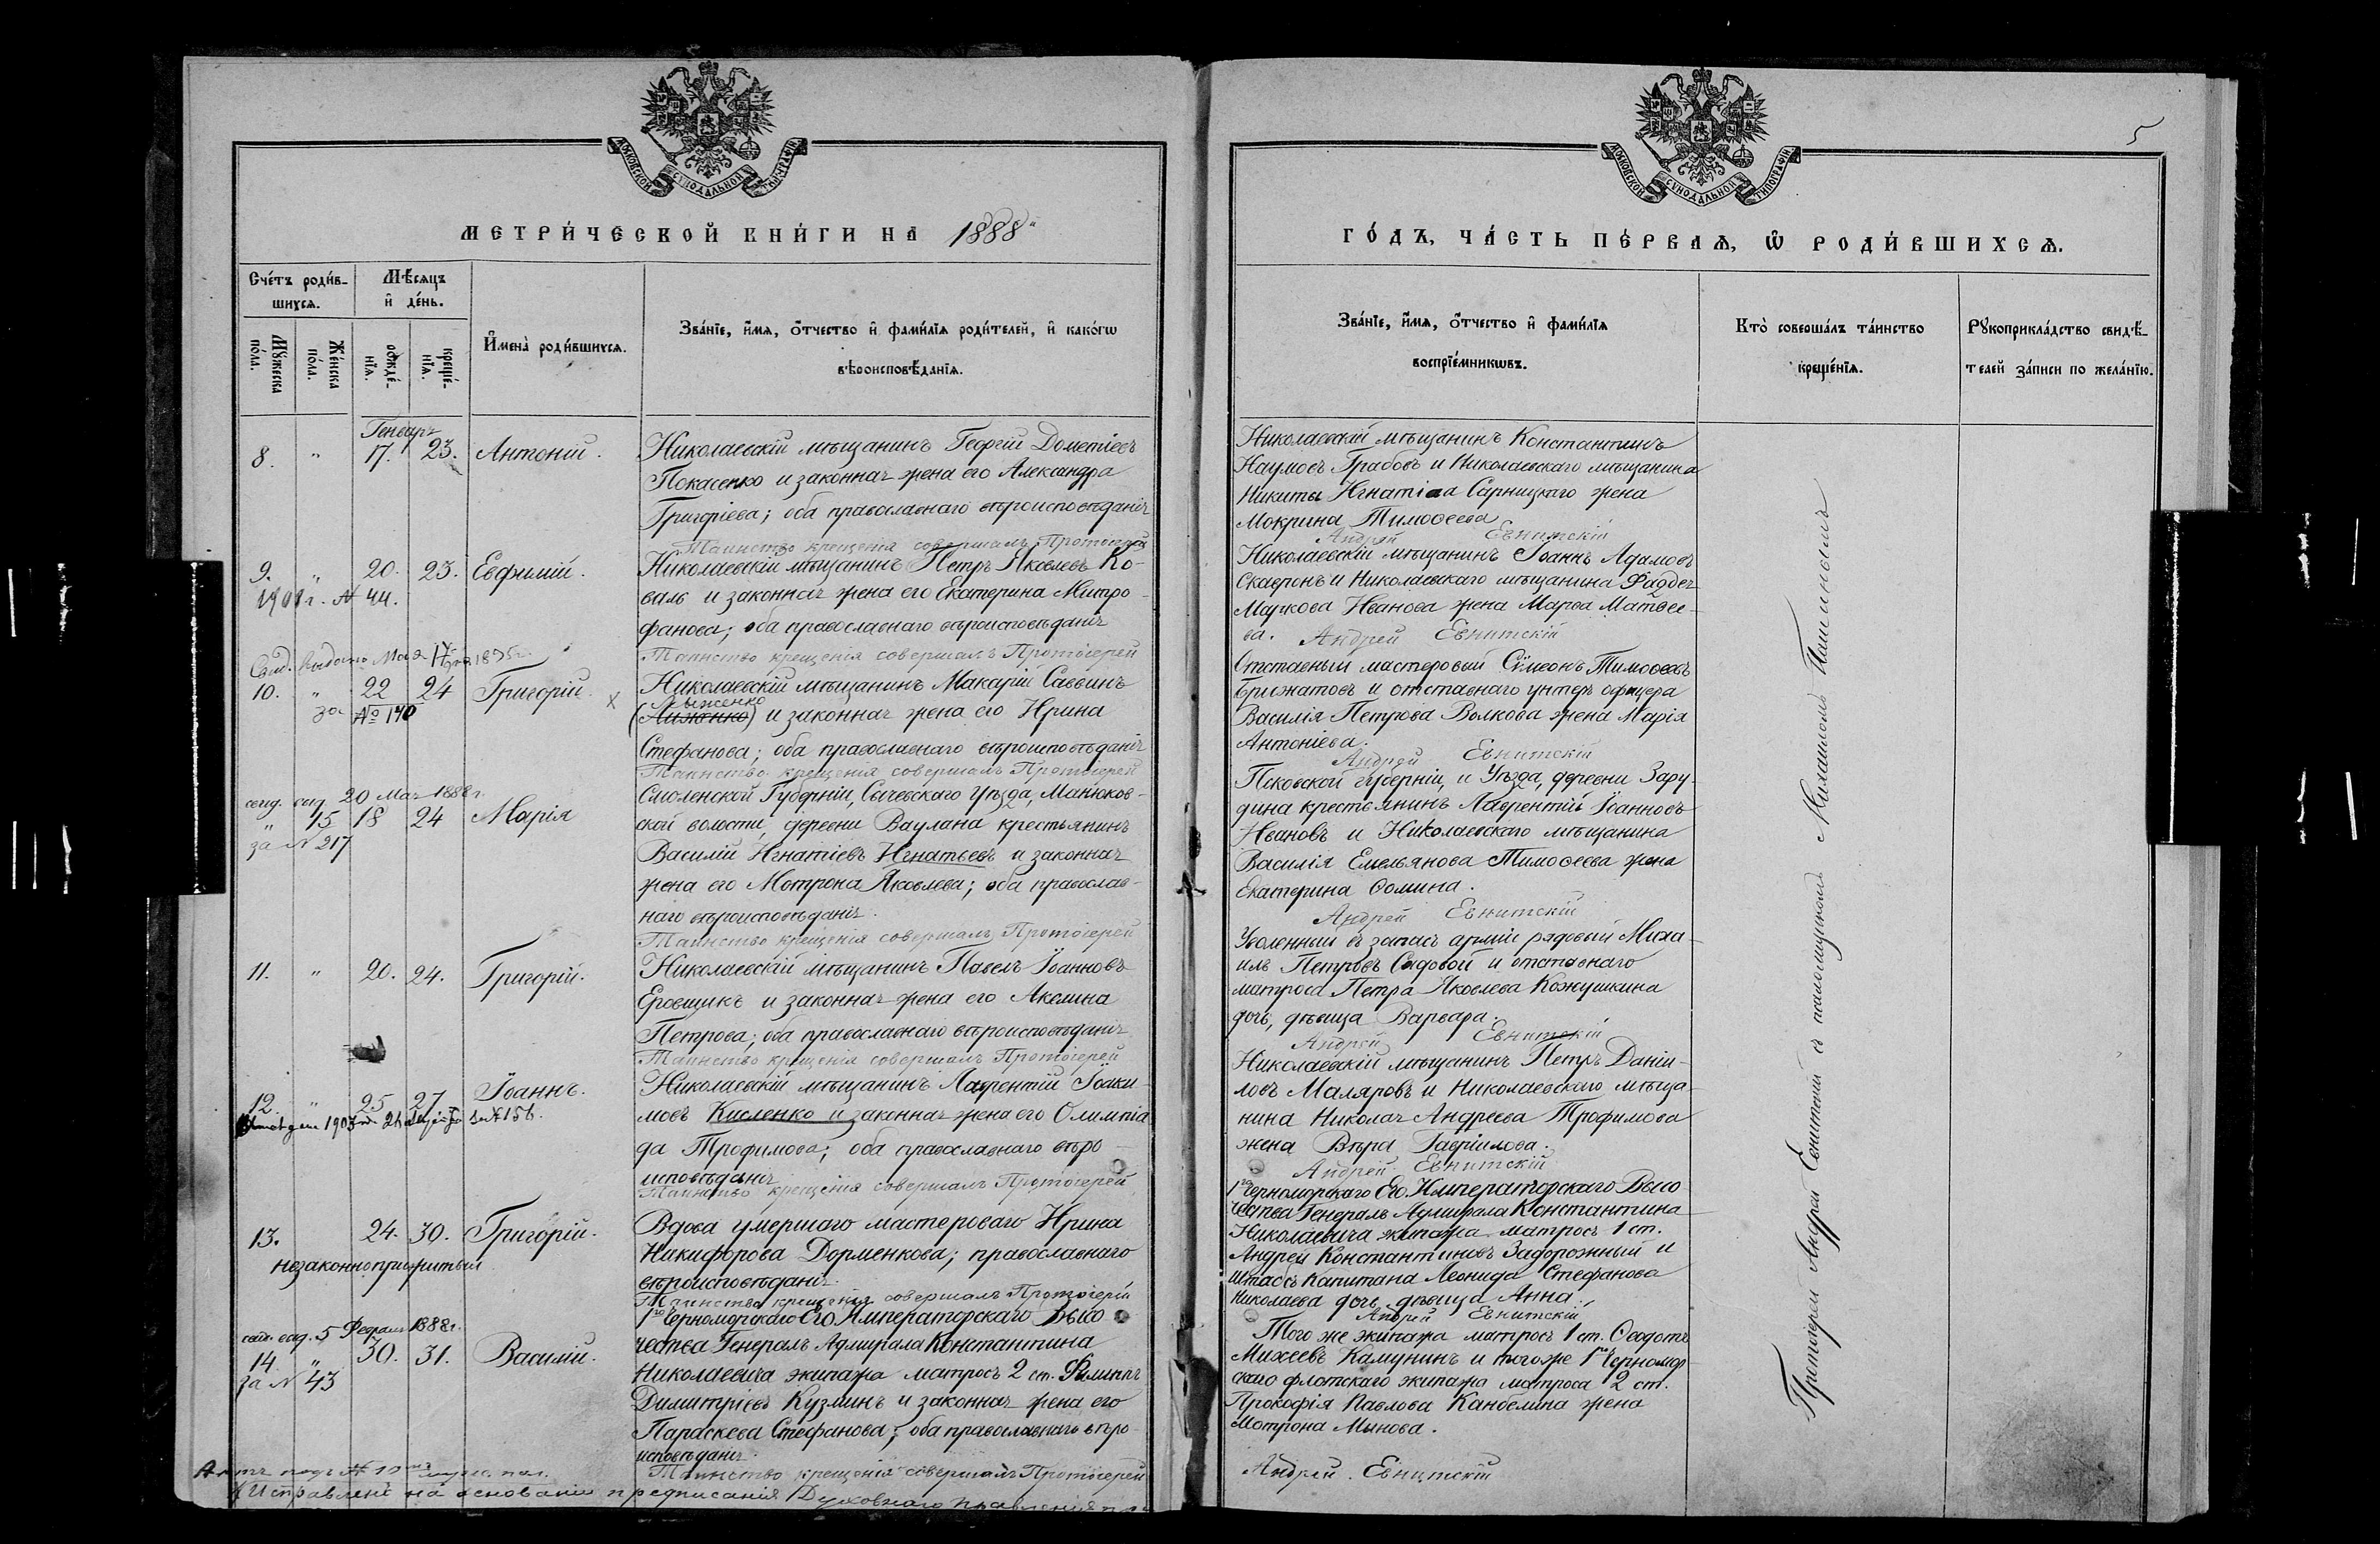 МОСКОВСКОЙ СѴНОДАЛЬНОЙ ТѴПОГРАФІИ
МЕТРИ́ЧЕСКОЙ КНИ́ГИ НА 1888
Сче́тъ роди́в-
шихся.
Мѣ́сяцъ
и҆ де́нь.
Мꙋ́жеска
по́ла.
Же́нска
по́ла.
рожде́-
нїѧ.
креще́-
нїѧ.
И҆мена̀ роди́вшихсѧ.
Зва́нїе, и҆́мѧ, ѻ҆́тчество и҆ фами́лїѧ роди́телей, и҆ како́гѡ
вѣроисповѣ́данїѧ.
Генварь
8. " 17. 23. Антоній.
Николаевскій мѣщанинъ Георгій Дометіевъ
Покасенко и законная жена его Александра
Григоріева; оба православнаго вѣроисповѣданія
Таинство крещенія совершалъ Протоіерей
9. " 20. 23. Евфимій.
1901 г. № 44.
Николаевскій мѣщанинъ Петръ Яковлевъ Ко-
валь и законная жена его Екатерина Митро-
фанова; оба православнаго вѣроисповѣданія
Таинство крещенія совершалъ Протоіерей
Свид. выдано Мая 17 1895 г.
10. " 22 24 Григорій. х
за № 140
Николаевскій мѣщанинъ Макарій Саввинъ
Рыженко
(Лиженко) и законная жена его Ирина
Стефанова; оба православнаго вѣроисповѣданія
Таинство крещенія совершалъ Протоіерей
свид. выд. 20 Мая 1888 г.
" 15 18 24 Марія
за № 217
Смоленской Губерніи, Сычевскаго Уѣзда, Манюков-
ской волости, деревни Ваулана крестьянинъ
Василій Игнатіевъ Игнатьевъ и законная
жена его Мотрона Яковлева; оба православ-
наго вѣроисповѣданія.
Таинство крещенія совершалъ Протоіерей
11. " 20. 24. Григорій.
Николаевскій мѣщанинъ Павелъ Іоанновъ
Ерѳещикъ и законная жена его Акелина
Петрова; оба православнаго вѣроисповѣданія
Таинство крещенія совершалъ Протоіерей
12. " 25 27 Іоаннъ.
за № 156.
Николаевскій мѣщанинъ Лаврентій Іоаки-
мовъ Кисленко и законная жена его Олимпіа
да Трофимова; оба православнаго вѣро-
исповѣданія
Таинство крещенія совершалъ Протоіерей
13. 24. 30. Григорій.
незаконноприжитый
Вдова умершаго мастероваго Ирина
Никифорова Дорменкова; православнаго
вѣроисповѣданія.
Таинство крещенія совершалъ Протоіерей
свид. выд. 5 Февраля 1888 г.
14. " 30. 31. Василій.
за № 43
1го Черноморскаго Его Императорскаго Высо
чества Генералъ Адмирала Константина
Николаевича экипажа матросъ 2 ст. Филиппъ
Димитріевъ Кузминъ и законная жена его
Параскева Стефанова; оба православнаго вѣро-
исповѣданія.
Таинство крещенія совершалъ Протоіерей
Актъ подъ № 10 муж. пол.
Исправленъ на основаніи предписанія Духовнаго Правленія
5
МОСКОВСКОЙ СѴНОДАЛЬНОЙ ТИПОГРАФІИ
ГО́ДЪ, ЧА́СТЬ ПЕ́РВАѦ, Ѽ РОДИ́ВШИХСѦ.
Зва́нїе, и҆́мѧ, ѻ҆́тчество и҆ фами́лїѧ
воспрїе́мникѡвъ.
Кто̀ соверша́лъ та́инство
креще́нїѧ.
Рꙋкоприкла́дство свидѣ́-
телей за́писи по жела́нїю.
Николаевскій мѣщанинъ Константинъ
Наумовъ Грабовъ и Николаевскаго мѣщанина
Никиты Игнатіева Сарницкаго жена
Мокрина Тимоѳеева
Андрей Евнитскій
Николаевскій мѣщанинъ Іоаннъ Адамовъ
Скавронъ и Николаевскаго мѣщанина Фаддея
Маркова Иванова жена Марѳа Матѳее-
ва. Андрей Евнитскій
Отставный мастеровый Сѵмеонъ Тимоѳеевъ
Брижатовъ и отставнаго унтеръ офицера
Василія Петрова Волкова жена Марія
Антоніева.
Андрей Евнитскій
Псковской Губерніи, и Уѣзда, деревни Зару-
дина крестьянинъ Лаврентій Іоанновъ
Ивановъ и Николаевскаго мѣщанина
Василія Емельянова Тимоѳеева жена
Екатерина Ѳомина.
Андрей Евнитскій
Уволенный въ запасъ арміи рядовый Миха-
илъ Петровъ Садовой и отставнаго
матроса Петра Яковлева Кожушкина
дочь, дѣвица Варвара.
Андрей Евнитскій
Николаевскій мѣщанинъ Петръ Даніи-
ловъ Маляровъ и Николаевскаго мѣща-
нина Николая Андреева Трофимова
жена Вѣра Гавріилова.
Андрей Евнитскій
1го Черноморскаго Его Императорскаго Высо
чества Генералъ Адмирала Константина
Николаевича экипажа матросъ 1 ст.
Андрей Константиновъ Задорожный и
Штабсъ Капитана Леонида Стефанова
Николаева дочь, дѣвица Анна.
Андрей Евнитскій
Того же экипажа матросъ 1 ст. Ѳеодотъ
Михеевъ Камунинъ и того же 1го Черномор-
скаго флотскаго экипажа матроса 2 ст.
Прокофія Павлова Канбелина жена
Мотрона Минова.
Андрей Евнитскій
Протоіерей Андрей Евнитскій съ псаломщикомъ